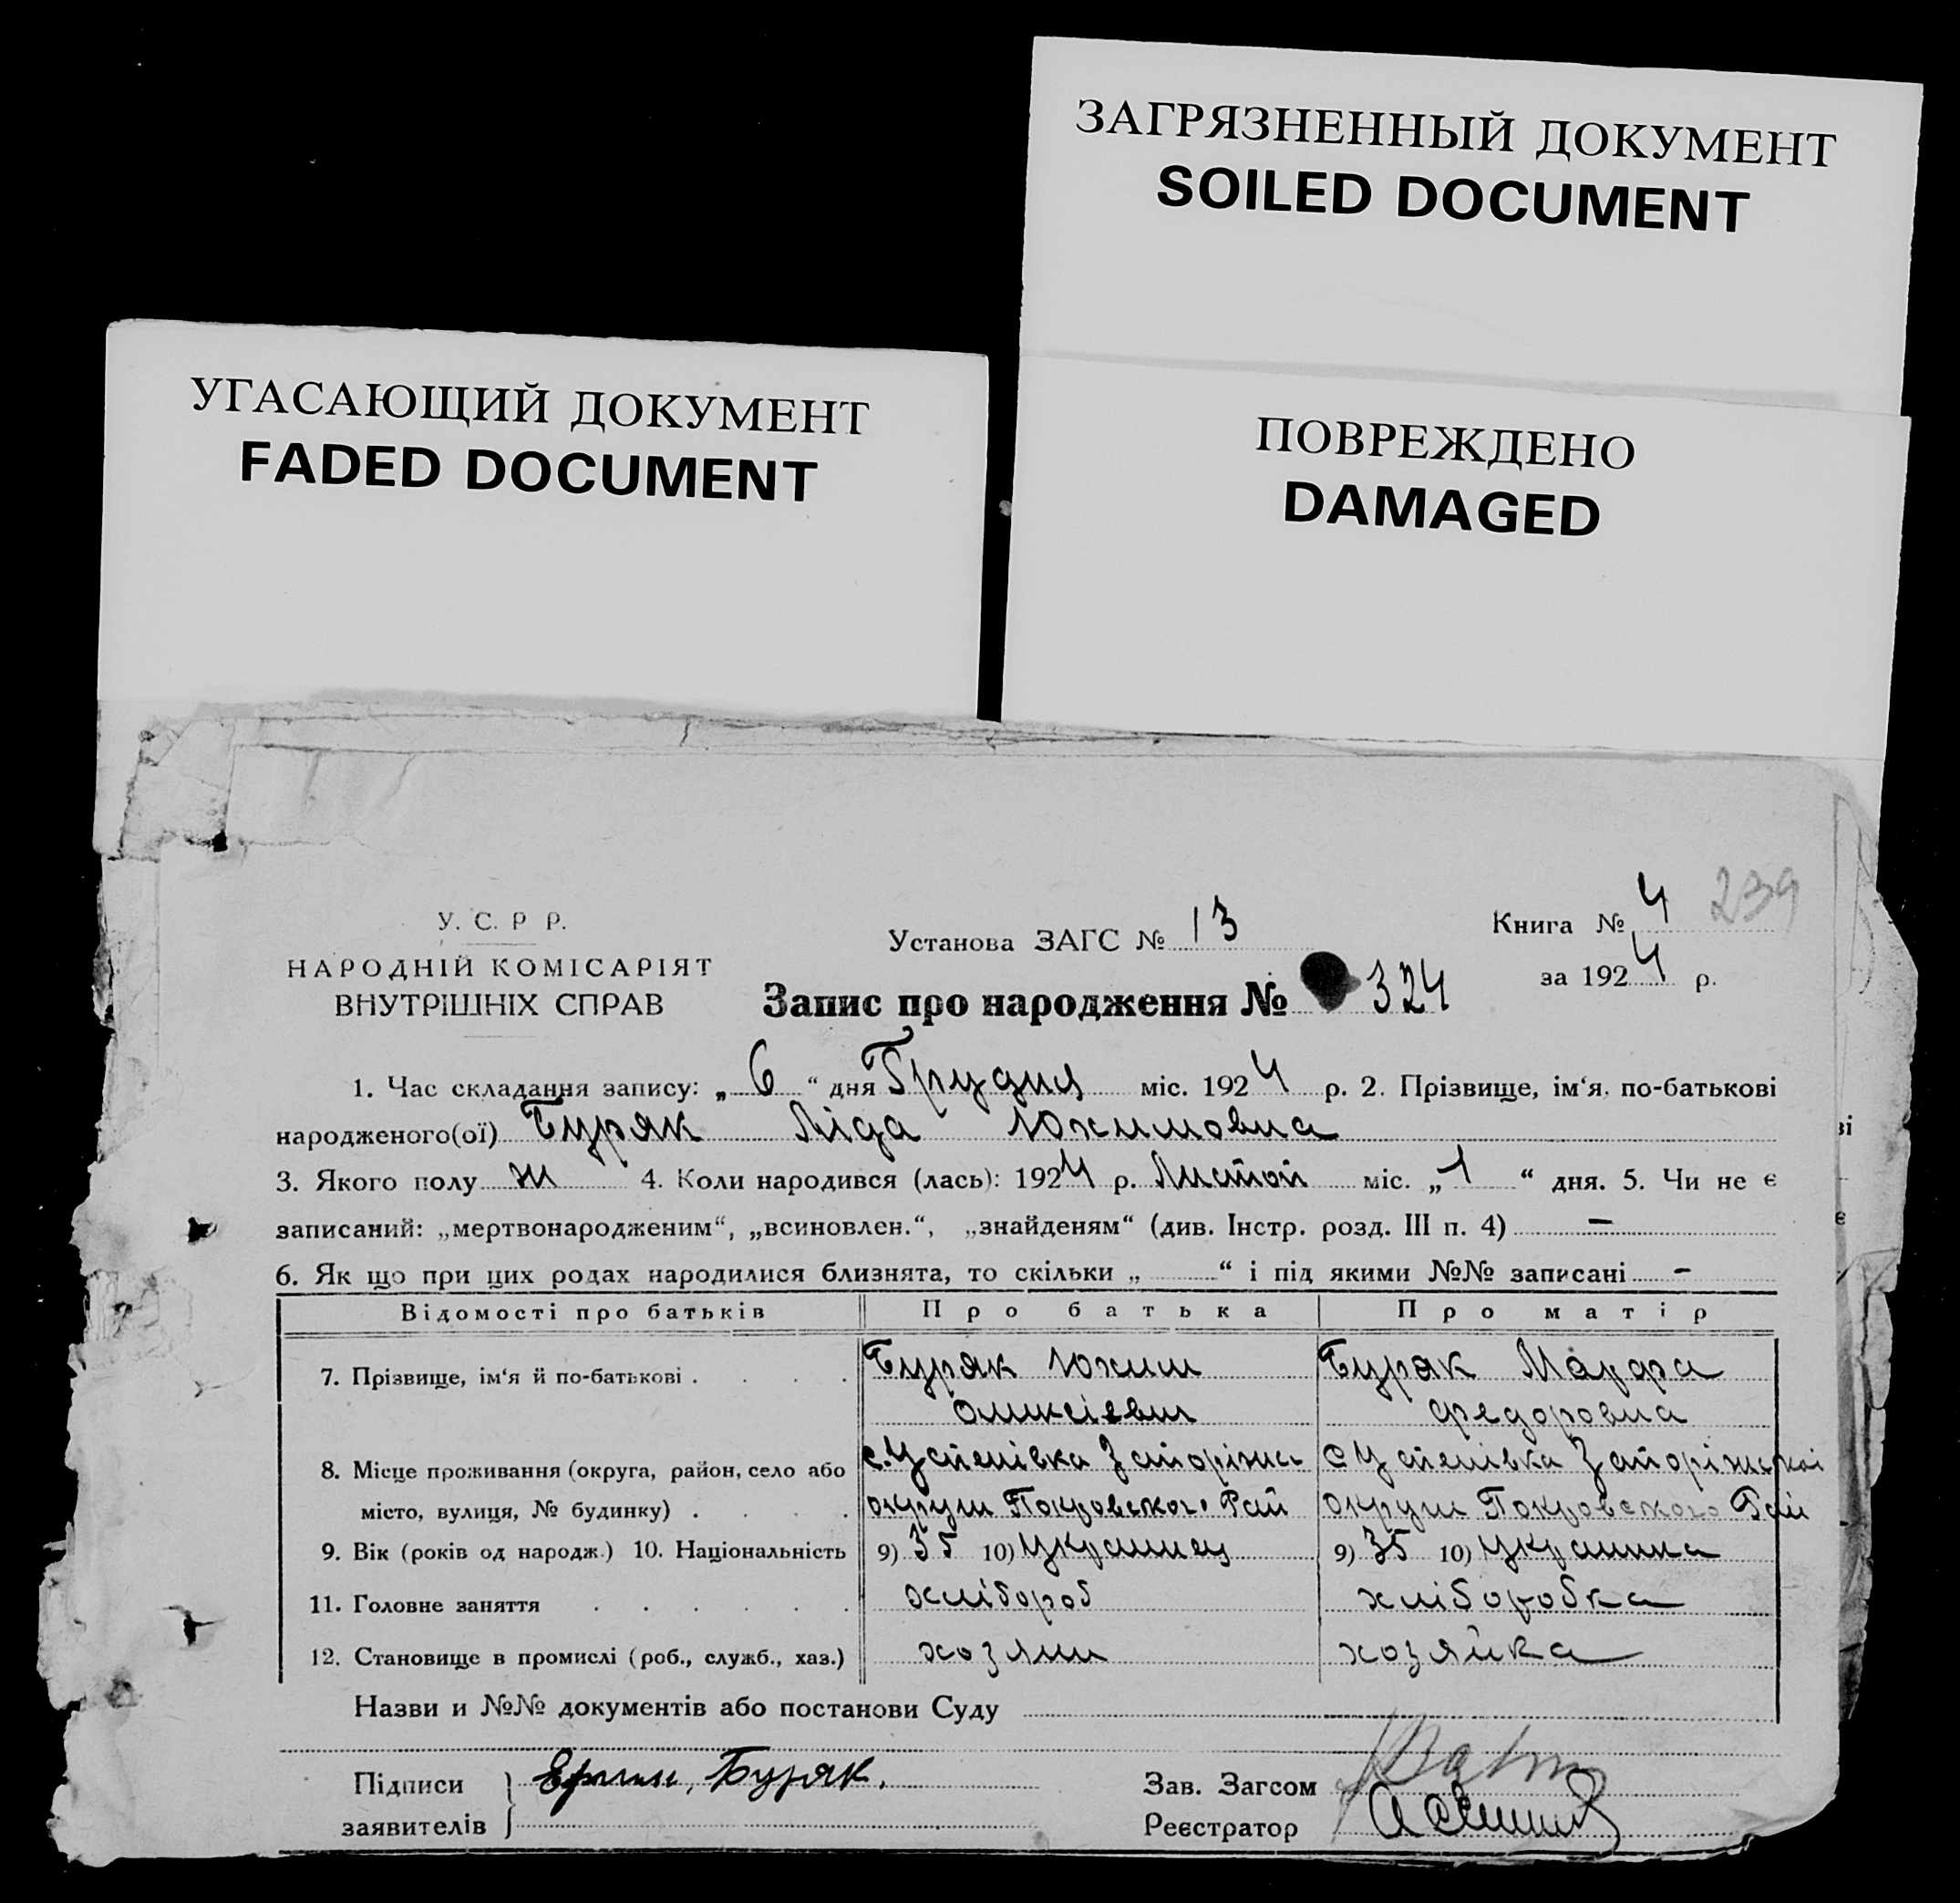 ЗАГРЯЗНЕННЫЙ ДОКУМЕНТ
SOILED DOCUMENT
УГАСАЮЩИЙ ДОКУМЕНТ
FADED DOCUMENT
ПОВРЕЖДЕНО
DAMAGED
У. С. Р Р.
НАРОДНІЙ КОМІСАРІЯТ
ВНУТРІШНІХ СПРАВ
Установа ЗАГС № 13
Запис про народження № 324
Книга № 4 239
за 1924 р.
1. Час складання запису: „ 6 “ дня Грудня міс. 1924 р. 2. Прізвище, ім‘я, по-батькові
народженого(ої) Буряк Ліда Юхимовна
3. Якого полу ж 4. Коли народився (лась): 1924 р. Листоп міс. „ 1 “ дня. 5. Чи не є
записаний: „мертвонародженим“, „всиновлен.“, „знайденям“ (див. Інстр. розд. III п. 4) —
6. Як що при цих родах народилися близнята, то скільки „ “ і під якими №№ записані -
Відомості про батьків Про батька Про матір
7. Прізвище, ім‘я й по-батькові . . . . Буряк Юхим Буряк Марфа
Оликсіевич Федоровна
8. Місце проживання (округа, район, село або с. Успенівка Запоріжс с Успенівка Запоріжскоі
місто, вулиця, № будинку) . . . . округи Покровского Рай округи Покровского Рай
9. Вік (років од народж.) 10. Національність 9) 35 10) Украинец 9) 35 10) Украинка
11. Головне заняття . . . . . . хлібороб хліборобка
12. Становище в промислі (роб., служб., хаз.) хозяин хозяйка
Назви и №№ документів або постанови Суду
Підписи
заявителів
Буряк.
Зав. Загсом
Реєстратор